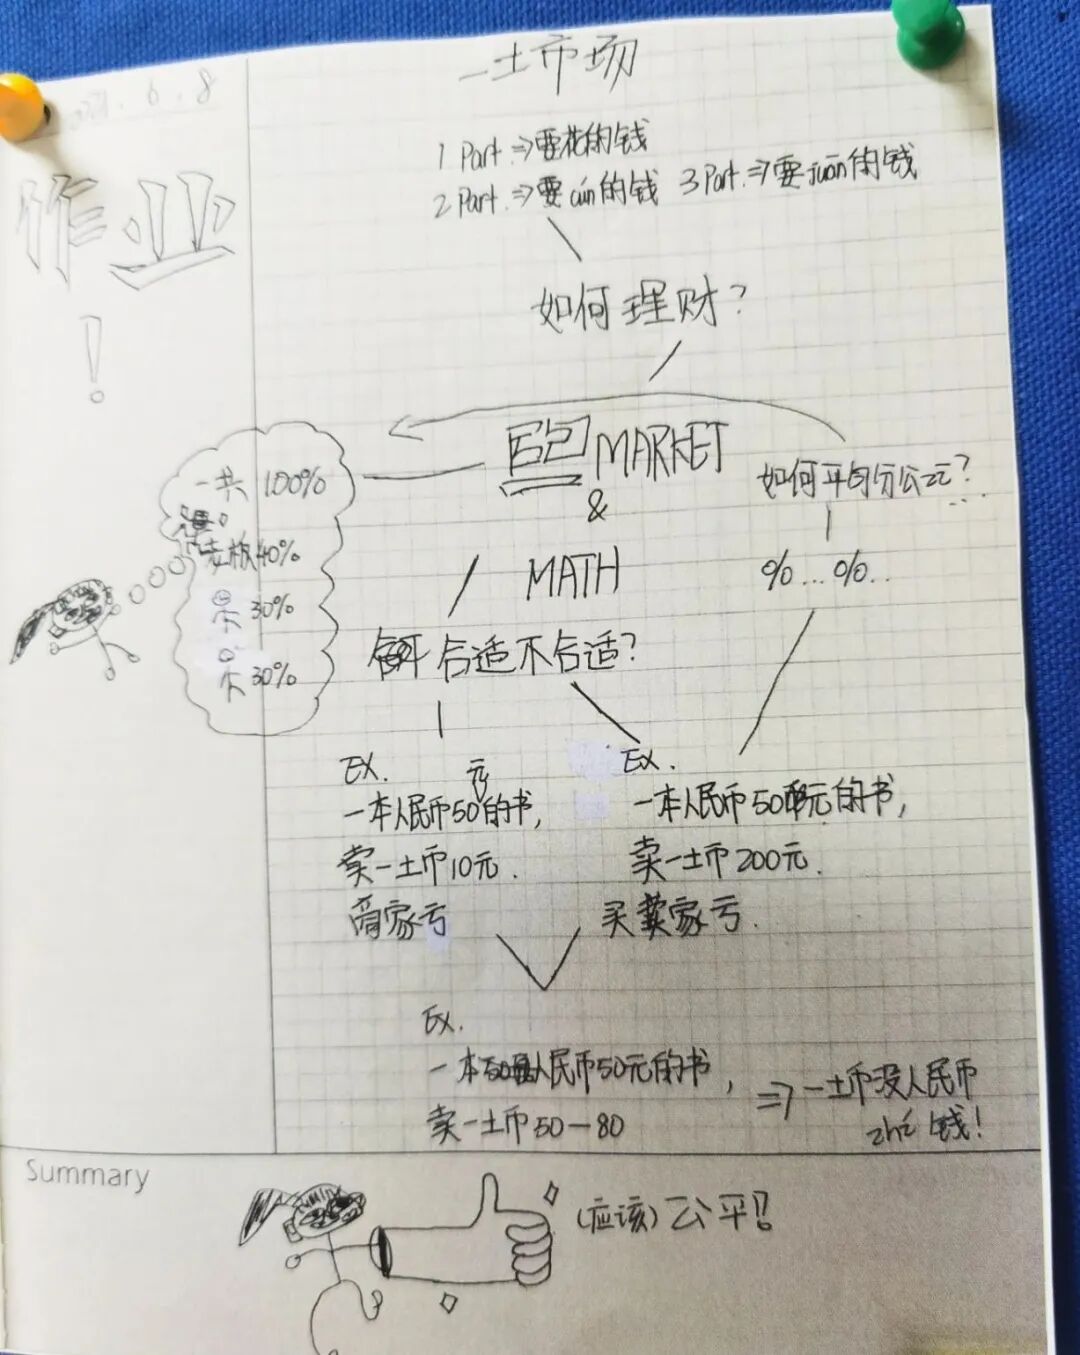 一土市场
.6.8
作业
!
1 Part. ⇒要花的钱
2 Part. ⇒要cún的钱 3 Part. ⇒要juān的钱
如何理财?
MARKET
&
MATH
如何平均分公元?
%...%..
一共 100%
老板40%
30%
30%
合适不合适?
EX.
一本人民币50元的书,
卖一土币10元.
商家亏
EX.
一本人民币50元的书,
卖一土币200元.
买卖家亏.
EX.
一本人民币50元的书,
卖一土币50-80
⇒一土币没人民币
zhí钱!
Summary
(应该)公平!